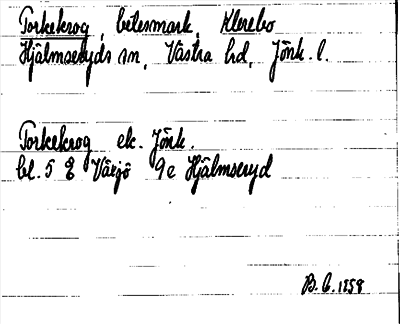 Torkekrog, betesmark, Klerebo
Hjälmseryds sn, Västra hd, Jönk. l.
Torkekrog ek. Jönk.
bl. 5 E Värjö 9e Hjälmseryd
B. C. 1958